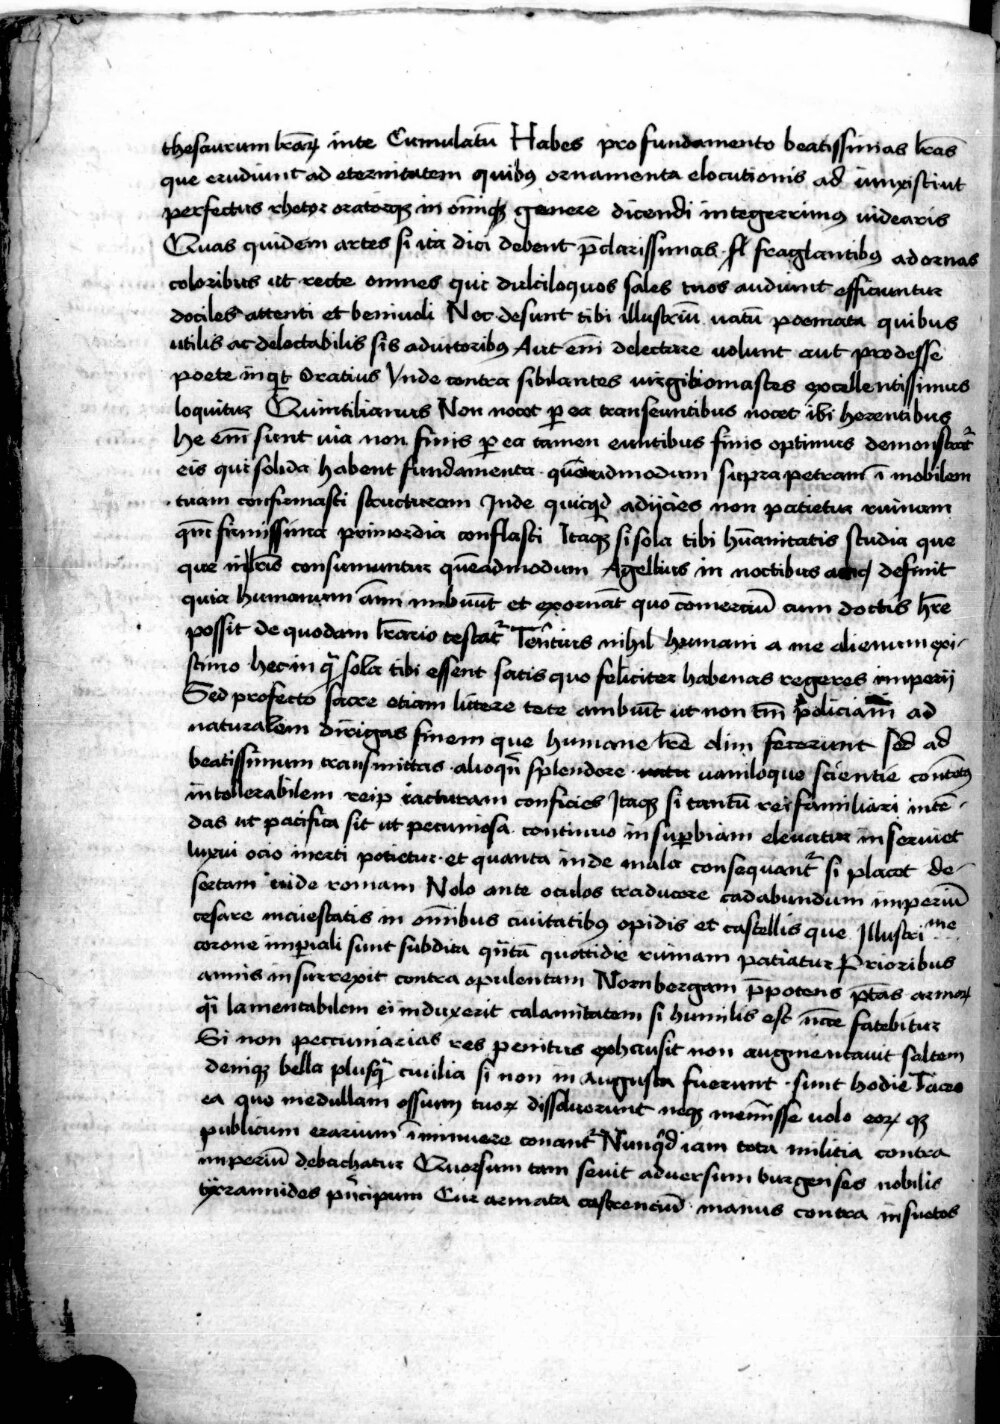 thesaurum lrarꝝ in te Cumulatū Habes pro fundamento beatissimas lras
que erudiunt ad eternitatem quibꝰ ornamenta elocutionis ad iunxisti ut
perfectus rhetor oratorqꝫ in omīqꝫ genere dicendi integerrimꝰ videaris
Quas quidem artes si ita dici debent p̄clarissimas fraglantibꝰ adornas
coloribus ut recte omnes qui dulciloquos sales tuos audiunt efficiuntur
dociles attenti et beniuoli Nec desunt tibi illustriū vatū poemata quibus
utilis ac delectabilis sis aduitoribꝰ Aut em̄ delectare volunt aut prodesse
poete inqt Oratius Vnde contra sibilantes virgiliomastes excellentissimus
loquitur Quintilianus Non nocet per ea transeuntibus nocet ibi herentibus
he em̄ sunt via non finis per ea tamen euntibus finis optimus demonstrat
eis qui solida habent fundamenta quēadmodum supra petram ī mobilem
tuam confirmasti structuram Inde quicqd adijcies non patietur ruinam
qm̄ firmissima primordia conflasti Itaqꝫ si sola tibi hūanitatis studia que
que in lris consumuntur quēadmodum Agellius in noctibus definit
quia humanum aīm imbuūt et exornāt quo cōmerciū cum doctis hr̄e
possit de quodam lrario testat Terētius nihil humani a me alienum exi-
stimo hec in qā sola tibi essent satis quo feliciter habenas regeres imperij
Sed profecto sacre etiam littere te te ambiūt ut non tm̄ ad
naturalem dirigas finem que humane lre olim fecerunt sed ad
beatissimum transmittas alioqn̄ splendore vaniloque scientie contētꝰ
intollerabilem reip iacturam conficies Itaqꝫ si tantū rei familiari inten-
das ut pacifica sit ut pecuniosa continuo in superbiam eleuatur inseruiet
luxui ocio inerti potietur et quanta inde mala consequant si placet de-
sertam vide romam Nolo ante oculos traducere cadabundum imperiū
cesare maiestatis in omībus ciuitatibꝰ opidis et castellis que Illustrime
corone imperiali sunt subdita qn̄tā quottidie ruinam patiatur Prioribus
annis insurrexit contra opulentam Nornbergam p̄potens ptās armoꝝ
q̄ lamentabilem ei induxerit calamitatem si humilis est fatebitur
Si non peccuniarias res penitus exhausit non augmentauit saltem
deniqꝫ bella plusq̄ ciuilia si non in Augusta fuerunt sunt hodie Taceo
ea que medullam ossium tuoꝝ dissoluerunt neqꝫ meminisse volo eoꝝ qui
publicum erarium ī minuere conant Nunqd iam tota militia contra
imperiū debachatur Quorsum tam seuit aduersum burgenses nobilis
tyrannides principum Cur armata castrenciū manus contra insuetos